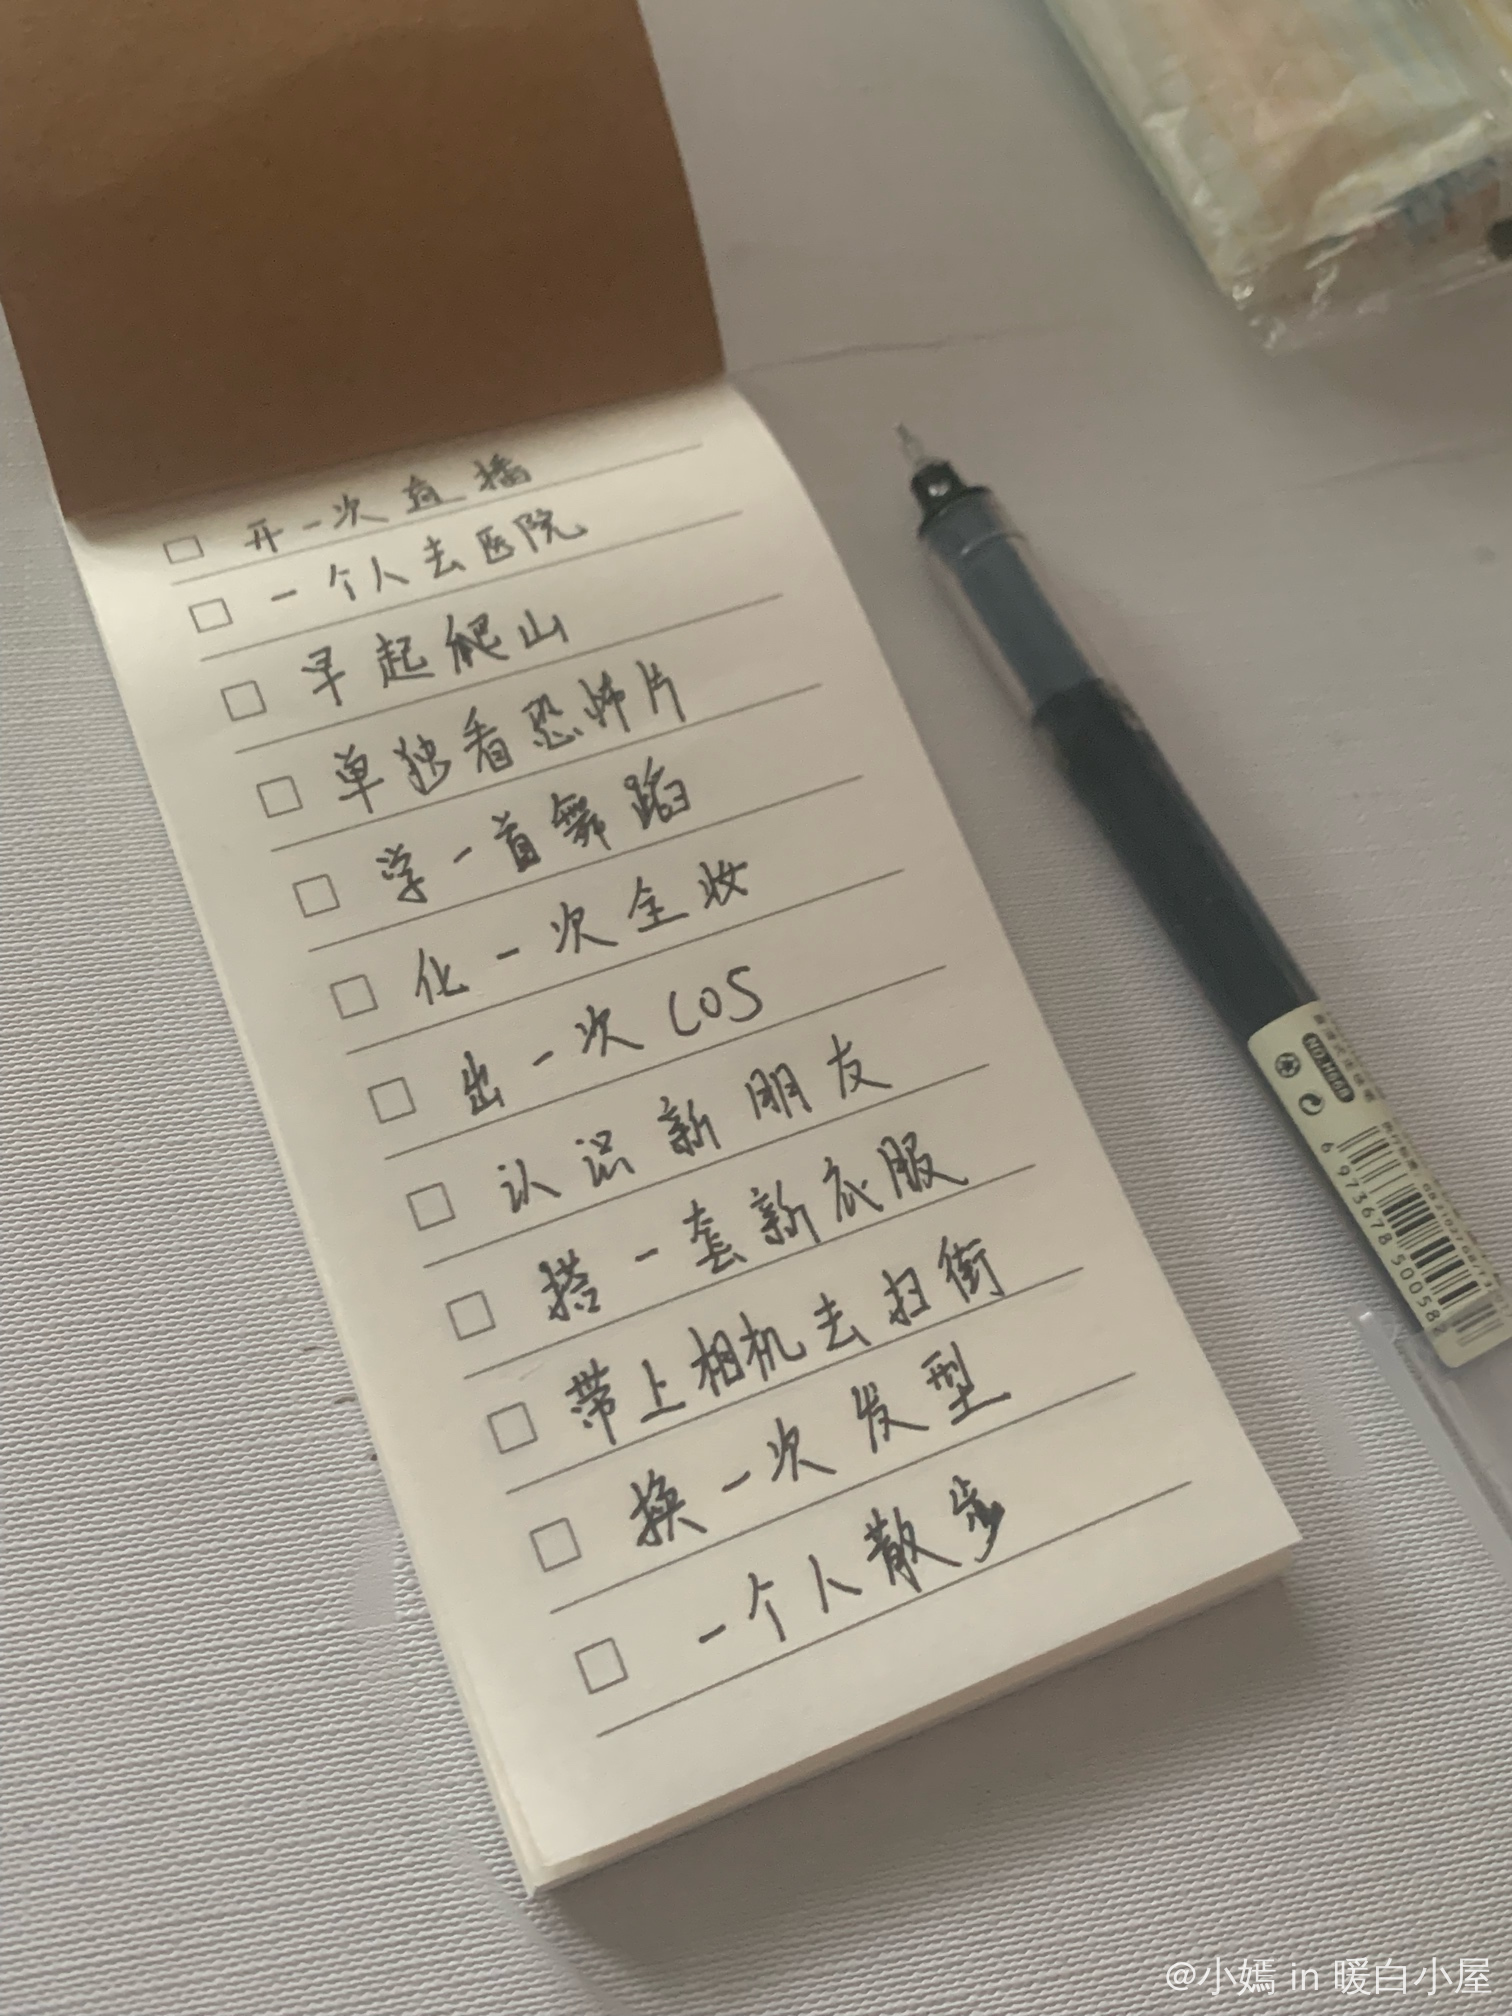 开一次直播
一个人去医院
早起爬山
单独看恐怖片
学一首舞蹈
化一次全妆
出一次cos
认识新朋友
搭一套新衣服
带上相机去扫街
换一次发型
一个人散步
6 973678 500582
@小嫣 in 暖白小屋